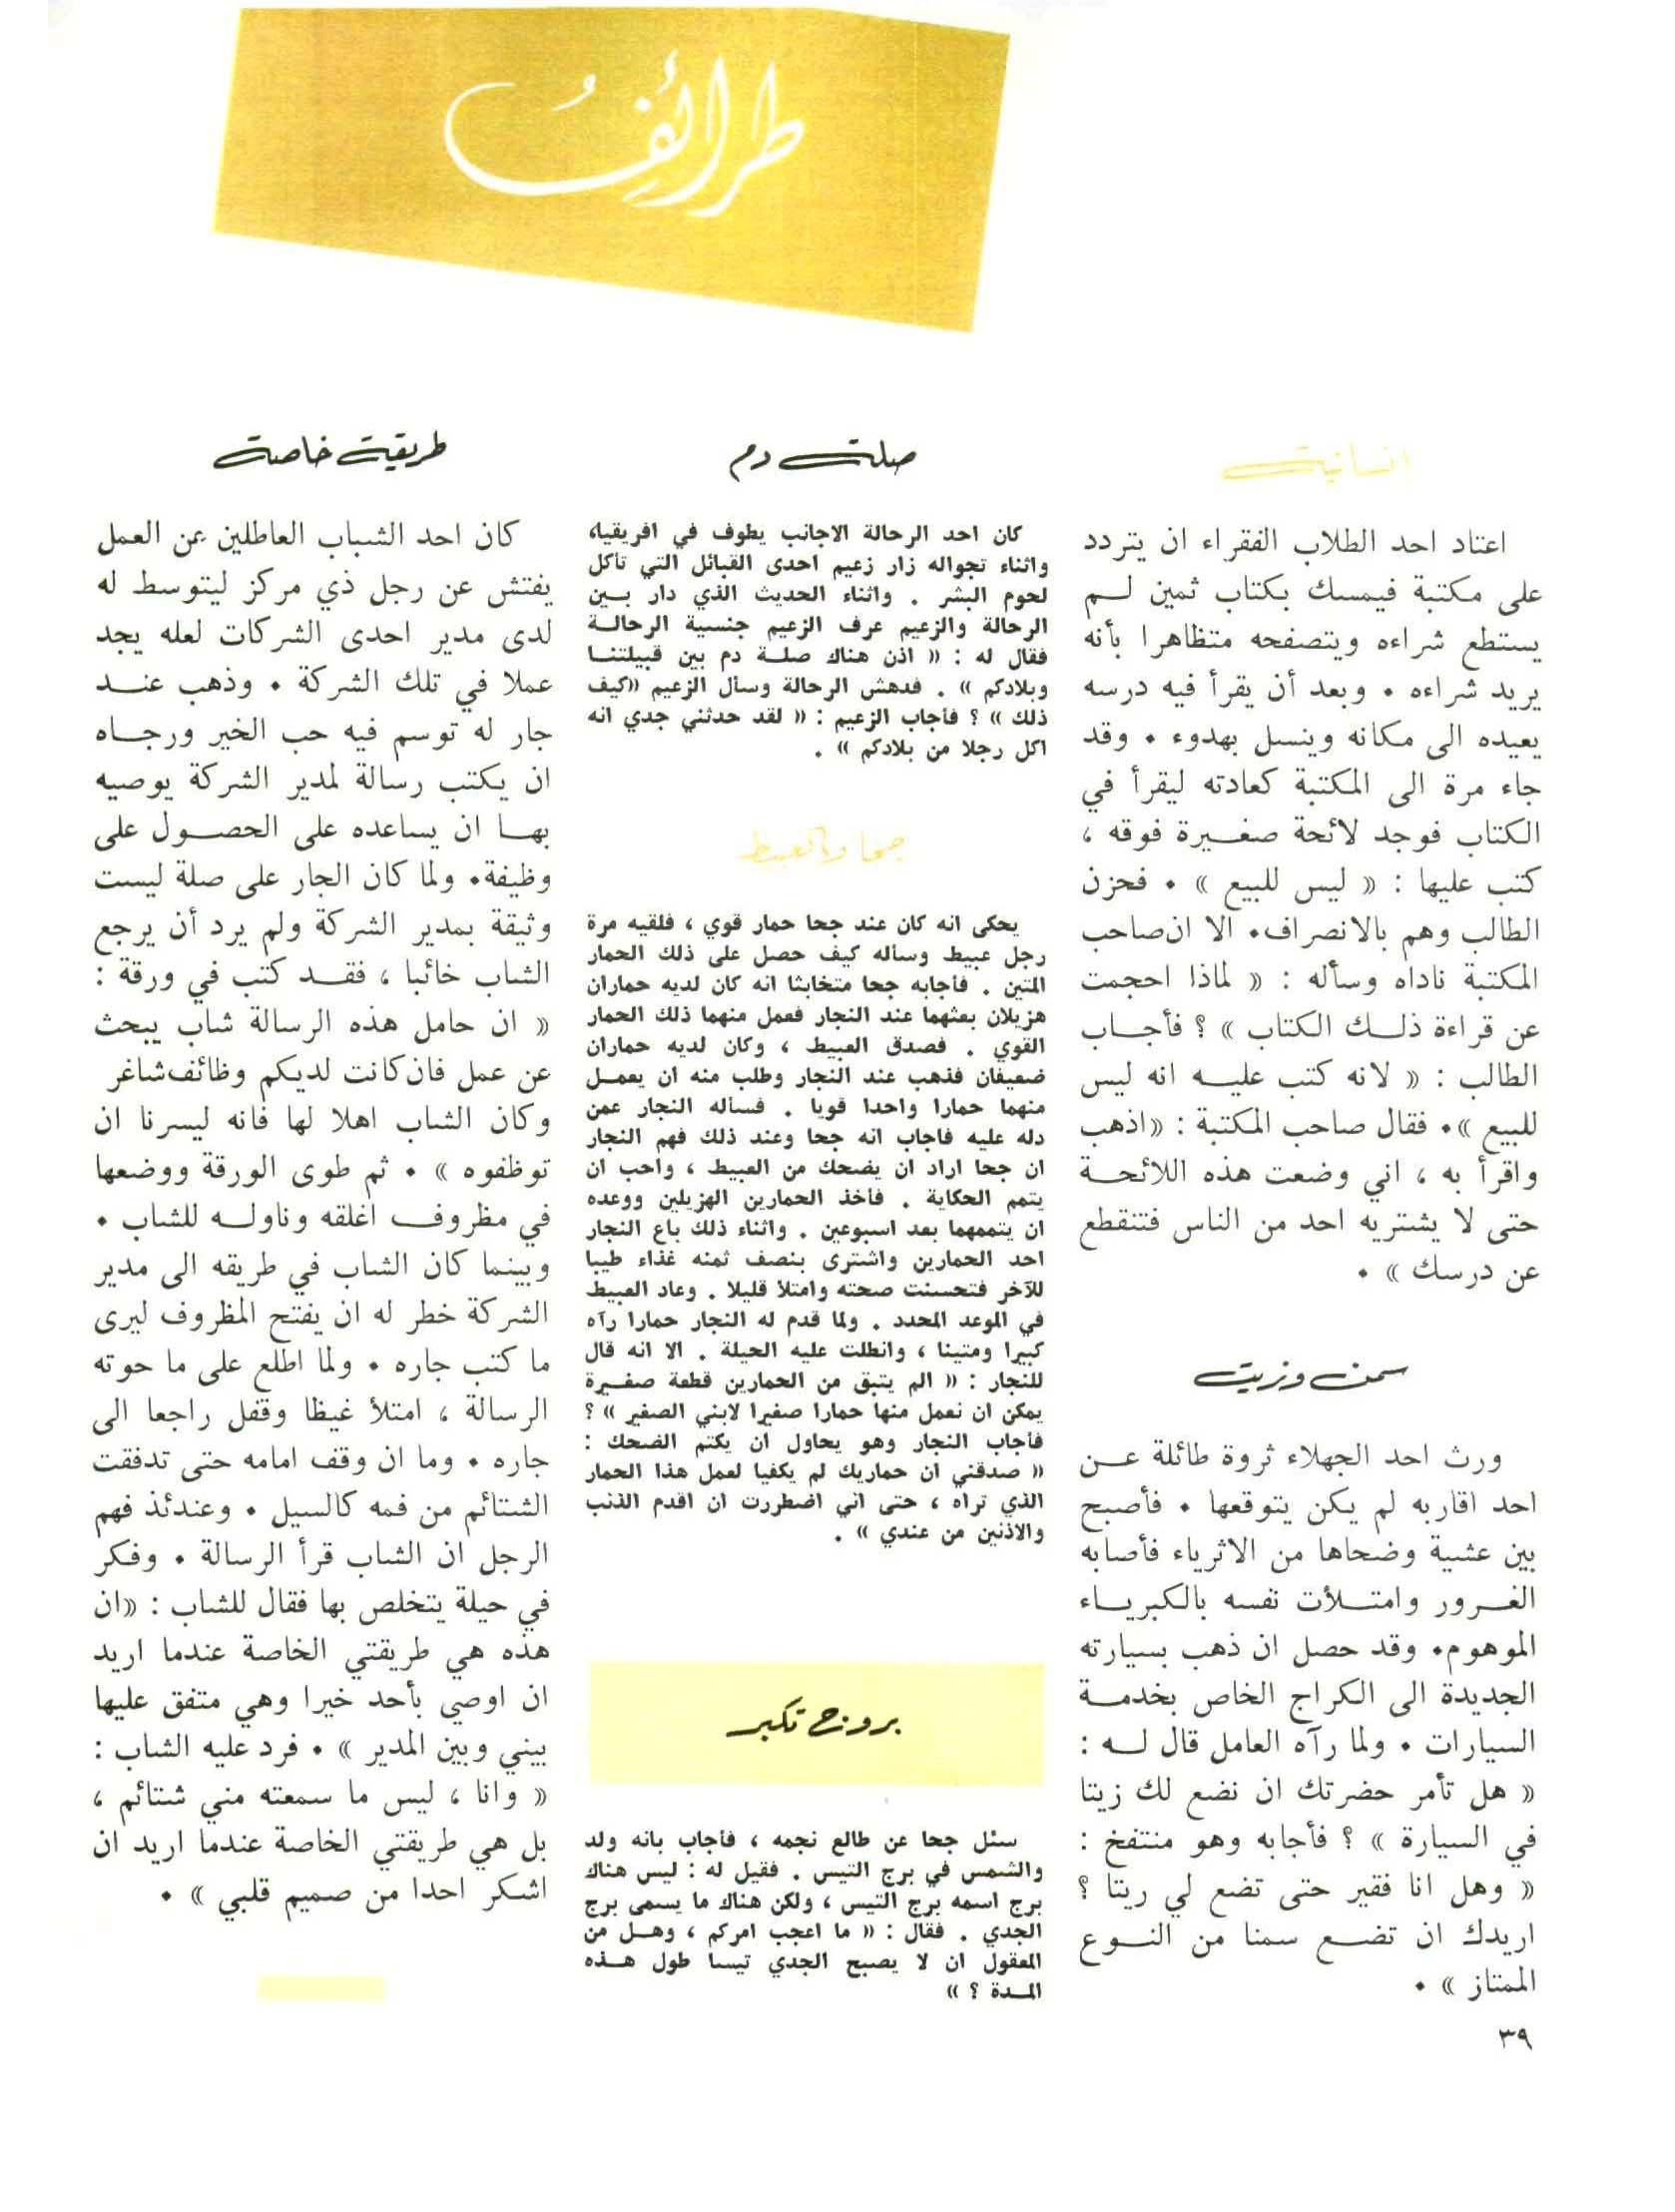 طرائف
انسانية
اعتاد احد الطلاب الفقراء ان يتردد
على مكتبة فيمسك بكتاب ثمين لم
يستطع شراءه ويتصفحه متظاهرا بأنه
يريد شراءه . وبعد أن يقرأ فيه درسه
يعيده الى مكانه وينسل بهدوء . وقد
جاء مرة الى المكتبة كعادته ليقرأ في
الكتاب فوجد لائحة صغيرة فوقه ،
كتب عليها : « ليس للبيع » . فحزن
الطالب وهم بالانصراف. الا ان صاحب
المكتبة ناداه وسأله : « لماذا احجمت
عن قراءة ذلك الكتاب » ؟ فأجاب
الطالب : « لانه كتب عليه انه ليس
للبيع ». فقال صاحب المكتبة : «اذهب
واقرأ به ، اني وضعت هذه اللائحة
حتى لا يشتريه احد من الناس فتنقطع
عن درسك » .
سمن وزيت
ورث احد الجهلاء ثروة طائلة عن
احد اقاربه لم يكن يتوقعها . فأصبح
بين عشية وضحاها من الاثرياء فأصابه
الغرور وامتلأت نفسه بالكبرياء
الموهوم. وقد حصل ان ذهب بسيارته
الجديدة الى الكراج الخاص بخدمة
السيارات . ولما رآه العامل قال له :
« هل تأمر حضرتك ان نضع لك زيتا
في السيارة » ؟ فأجابه وهو منتفخ :
« وهل انا فقير حتى تضع لي زيتا ؟
اريدك ان تضع سمنا من النوع
الممتاز » .
صلة دم
كان احد الرحالة الاجانب يطوف في افريقيا،
واثناء تجواله زار زعيم احدى القبائل التي تأكل
لحوم البشر . واثناء الحديث الذي دار بين
الرحالة والزعيم عرف الزعيم جنسية الرحالة
فقال له : « اذن هناك صلة دم بين قبيلتنا
وبلادكم » . فدهش الرحالة وسأل الزعيم «كيف
ذلك » ؟ فأجاب الزعيم : « لقد حدثني جدي انه
اكل رجلا من بلادكم » .
جحا والعبيط
يحكى انه كان عند جحا حمار قوي ، فلقيه مرة
رجل عبيط وسأله كيف حصل على ذلك الحمار
المتين . فأجابه جحا متخابثا انه كان لديه حماران
هزيلان بعثهما عند النجار فعمل منهما ذلك الحمار
القوي . فصدق العبيط ، وكان لديه حماران
ضعيفان فذهب عند النجار وطلب منه ان يعمل
منهما حمارا واحدا قويا . فسأله النجار عمن
دله عليه فأجاب انه جحا وعند ذلك فهم النجار
ان جحا اراد ان يضحك من العبيط ، واحب ان
يتمم الحكاية . فأخذ الحمارين الهزيلين ووعده
ان يتممهما بعد اسبوعين . واثناء ذلك باع النجار
احد الحمارين واشترى بنصف ثمنه غذاء طيبا
للآخر فتحسنت صحته وامتلأ قليلا . وعاد العبيط
في الموعد المحدد . ولما قدم له النجار حمارا رآه
كبيرا ومتينا ، وانطلت عليه الحيلة . الا انه قال
للنجار : « الم يتبق من الحمارين قطعة صغيرة
يمكن ان نعمل منها حمارا صغيرا لابني الصغير » ؟
فأجاب النجار وهو يحاول ان يكتم الضحك :
« صدقني ان حماريك لم يكفيا لعمل هذا الحمار
الذي تراه ، حتى اني اضطررت ان اقدم الذنب
والاذنين من عندي » .
بروج تكبر
سئل جحا عن طالع نجمه ، فأجاب بانه ولد
والشمس في برج التيس . فقيل له : ليس هناك
برج اسمه برج التيس ، ولكن هناك ما يسمى برج
الجدي . فقال : « ما اعجب امركم ، وهل من
المعقول ان لا يصبح الجدي تيسا طول هذه
المدة ؟ »
طريقة خاصة
كان احد الشباب العاطلين عن العمل
يفتش عن رجل ذي مركز ليتوسط له
لدى مدير احدى الشركات لعله يجد
عملا في تلك الشركة . وذهب عند
جار له توسم فيه حب الخير ورجاه
ان يكتب رسالة لمدير الشركة يوصيه
بها ان يساعده على الحصول على
وظيفة. ولما كان الجار على صلة ليست
وثيقة بمدير الشركة ولم يرد أن يرجع
الشاب خائبا ، فقد كتب في ورقة :
« ان حامل هذه الرسالة شاب يبحث
عن عمل فان كانت لديكم وظائف شاغر
وكان الشاب اهلا لها فانه ليسرنا ان
توظفوه » . ثم طوى الورقة ووضعها
في مظروف اغلقه وناوله للشاب .
وبينما كان الشاب في طريقه الى مدير
الشركة خطر له ان يفتح المظروف ليرى
ما كتب جاره . ولما اطلع على ما حوته
الرسالة ، امتلأ غيظا وقفل راجعا الى
جاره . وما ان وقف امامه حتى تدفقت
الشتائم من فمه كالسيل . وعندئذ فهم
الرجل ان الشاب قرأ الرسالة . وفكر
في حيلة يتخلص بها فقال للشاب : «ان
هذه هي طريقتي الخاصة عندما اريد
ان اوصي بأحد خيرا وهي متفق عليها
بيني وبين المدير » . فرد عليه الشاب :
« وانا ، ليس ما سمعته مني شتائم ،
بل هي طريقتي الخاصة عندما اريد ان
اشكر احدا من صميم قلبي » .
٣٩